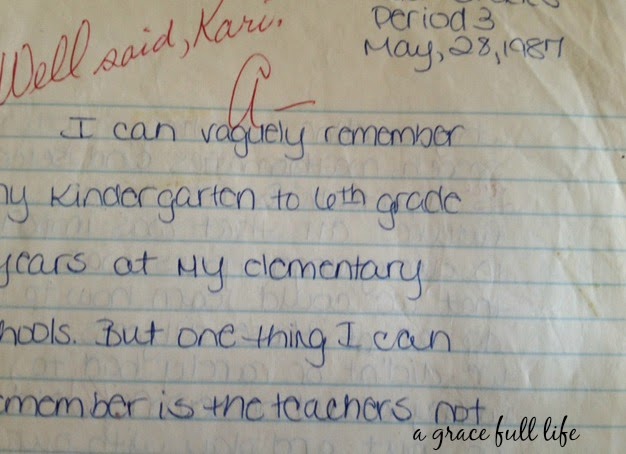 Period 3
Well said, Kari.
May, 28, 1987
A-
I can vaguely remember
my Kindergarten to 6th grade
years at my elementary
hools. But one thing I can
member is the teachers not
a grace full life